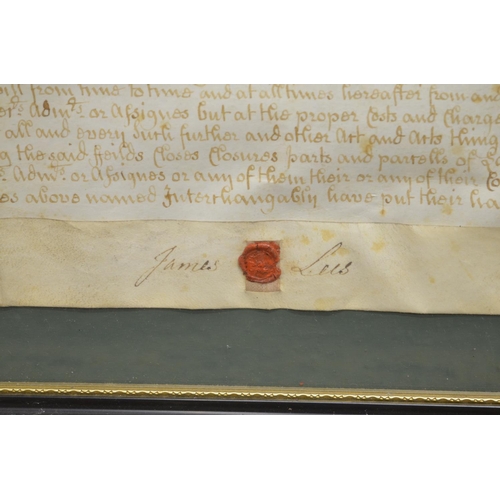 will from time to time and at all times hereafter from and
Adm.rs or Assignes but at the proper Costs and Charge
all and every such further and other Act and Acts thing
the said feilds Closes Closures parts and parcells of
Adm.rs or Assignes or any of them their or any of their Co
es above named Interchangably have put their ha
James Lees